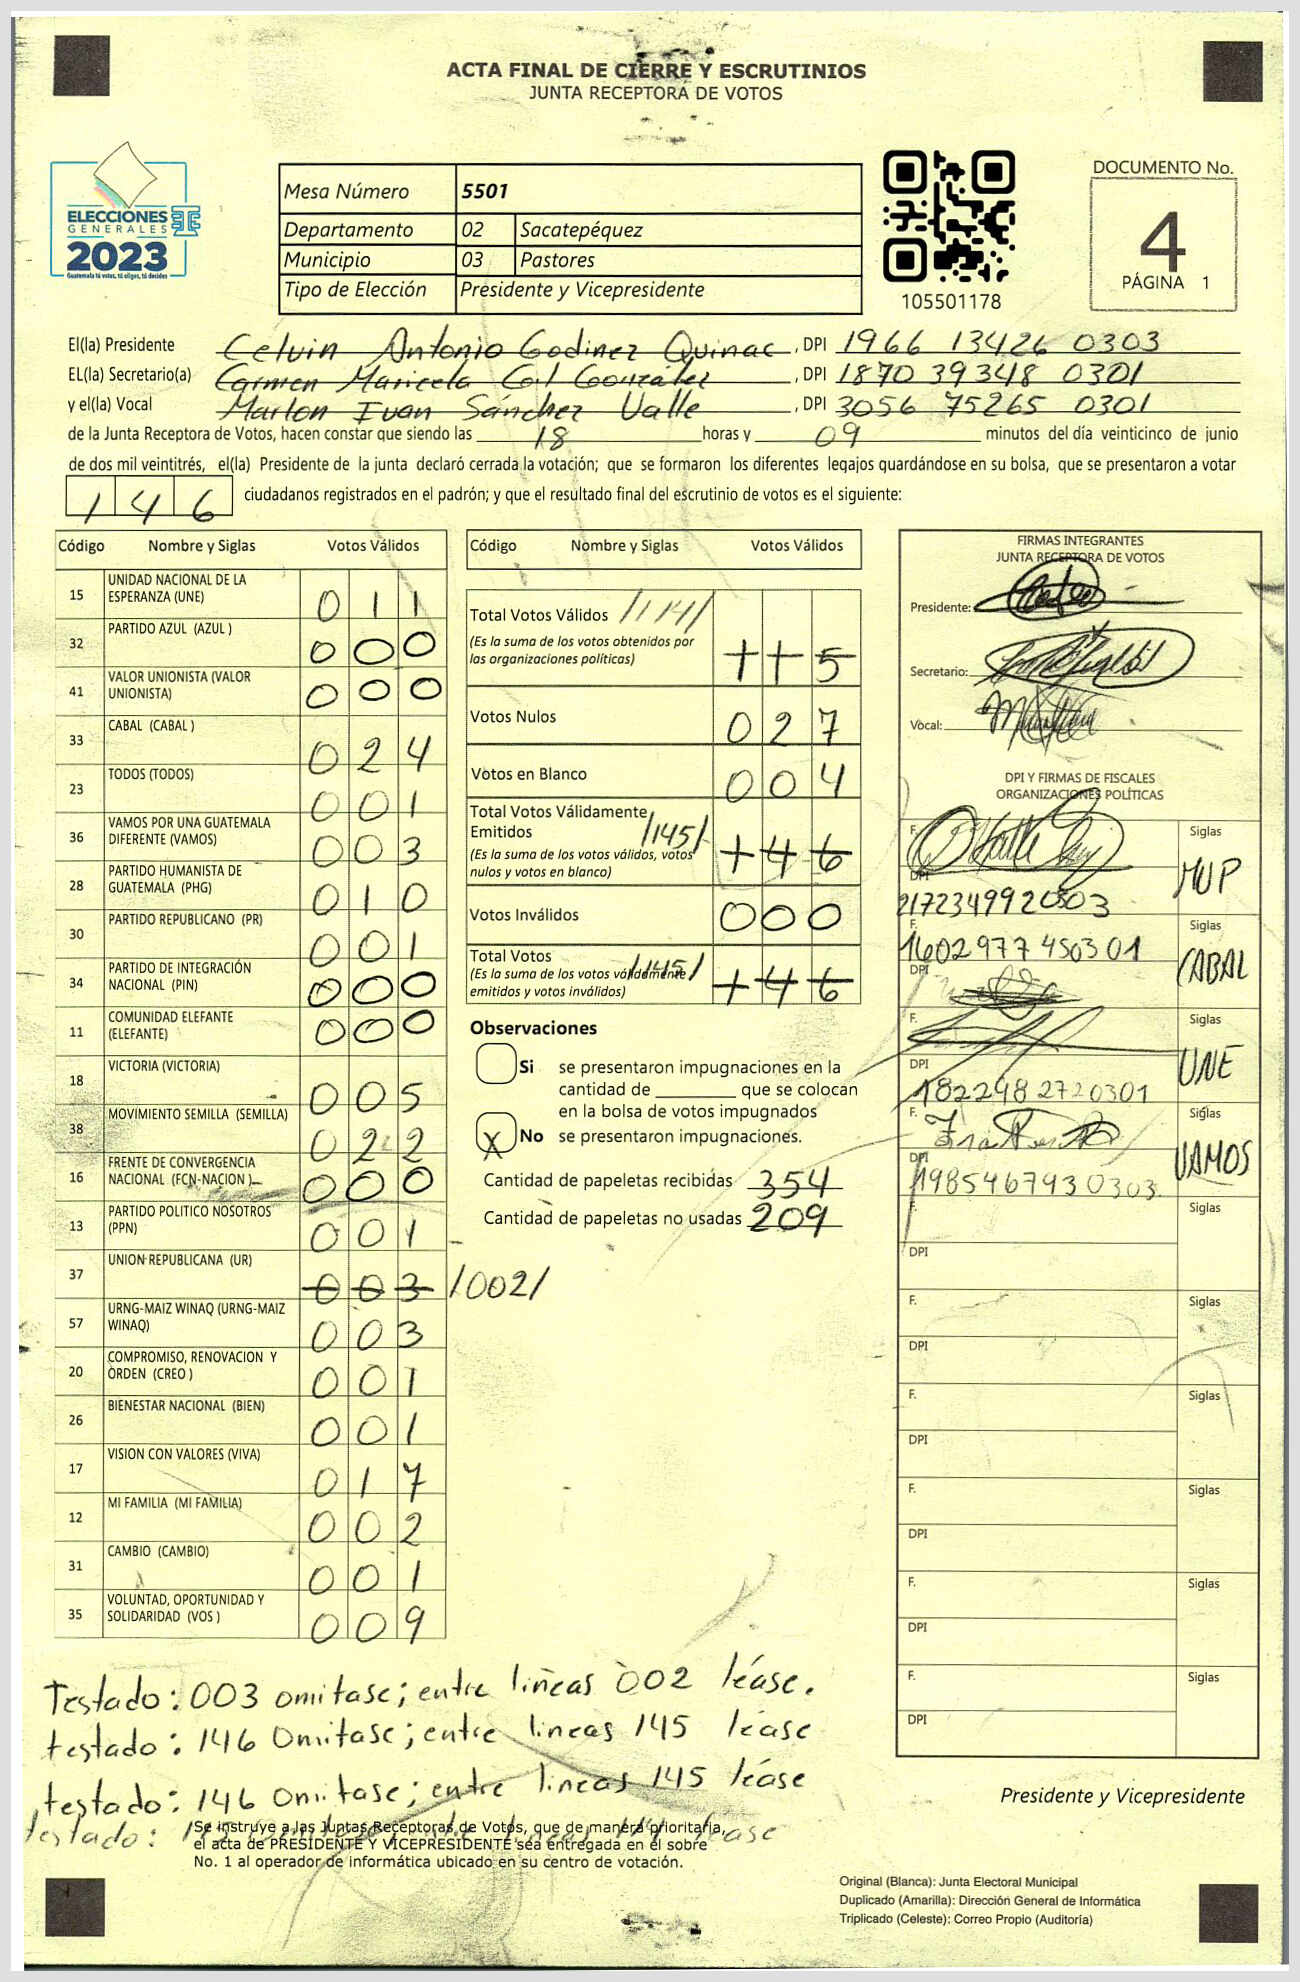 ACTA FINAL DE CIERRE Y ESCRUTINIOS
JUNTA RECEPTORA DE VOTOS
ELECCIONES
GENERALES
2023
Guatemala tú votas, tú eliges, tú decides
Mesa Número 5501
Departamento 02 Sacatepéquez
Municipio 03 Pastores
Tipo de Elección Presidente y Vicepresidente
105501178
DOCUMENTO No.
4
PÁGINA 1
El(la) Presidente Celvin Antonio Godinez Quinac, DPI 1966 13426 0303
EL(la) Secretario(a) Carmen Maricela Gil González, DPI 1870 39348 0301
y el(la) Vocal Marlon Ivan Sánchez Valle, DPI 3056 75265 0301
de la Junta Receptora de Votos, hacen constar que siendo las 18 horas y 09 minutos del día veinticinco de junio
de dos mil veintitrés, el(la) Presidente de la junta declaró cerrada la votación; que se formaron los diferentes legajos guardándose en su bolsa, que se presentaron a votar
146 ciudadanos registrados en el padrón; y que el resultado final del escrutinio de votos es el siguiente:
Código Nombre y Siglas Votos Válidos
15 UNIDAD NACIONAL DE LA ESPERANZA (UNE) 011
32 PARTIDO AZUL (AZUL ) 000
41 VALOR UNIONISTA (VALOR UNIONISTA) 000
33 CABAL (CABAL ) 024
23 TODOS (TODOS) 001
36 VAMOS POR UNA GUATEMALA DIFERENTE (VAMOS) 003
28 PARTIDO HUMANISTA DE GUATEMALA (PHG) 010
30 PARTIDO REPUBLICANO (PR) 001
34 PARTIDO DE INTEGRACIÓN NACIONAL (PIN) 000
11 COMUNIDAD ELEFANTE (ELEFANTE) 000
18 VICTORIA (VICTORIA) 005
38 MOVIMIENTO SEMILLA (SEMILLA) 022
16 FRENTE DE CONVERGENCIA NACIONAL (FCN-NACION ) 000
13 PARTIDO POLITICO NOSOTROS (PPN) 001
37 UNION REPUBLICANA (UR) 003 /002/
57 URNG-MAIZ WINAQ (URNG-MAIZ WINAQ) 003
20 COMPROMISO, RENOVACION Y ORDEN (CREO ) 001
26 BIENESTAR NACIONAL (BIEN) 001
17 VISION CON VALORES (VIVA) 017
12 MI FAMILIA (MI FAMILIA) 002
31 CAMBIO (CAMBIO) 001
35 VOLUNTAD, OPORTUNIDAD Y SOLIDARIDAD (VOS ) 009
Código Nombre y Siglas Votos Válidos
Total Votos Válidos /114/ 115
(Es la suma de los votos obtenidos por
las organizaciones políticas)
Votos Nulos 027
Votos en Blanco 004
Total Votos Válidamente
Emitidos /145/ 146
(Es la suma de los votos válidos, votos
nulos y votos en blanco)
Votos Inválidos 000
Total Votos /145/ 146
(Es la suma de los votos válidamente
emitidos y votos inválidos)
Observaciones
Si se presentaron impugnaciones en la
cantidad de ________ que se colocan
en la bolsa de votos impugnados
X No se presentaron impugnaciones.
Cantidad de papeletas recibidas 354
Cantidad de papeletas no usadas 209
FIRMAS INTEGRANTES
JUNTA RECEPTORA DE VOTOS
Presidente:
Secretario:
Vocal:
DPI Y FIRMAS DE FISCALES
ORGANIZACIONES POLÍTICAS
F. Siglas
DPI MUP
2172349920303
F. Siglas
1602977450301 CABAL
DPI
F. Siglas
DPI UNE
1822482720301
F. Siglas
DPI VAMOS
1985467930303
F. Siglas
DPI
F. Siglas
DPI
F. Siglas
DPI
F. Siglas
DPI
F. Siglas
DPI
F. Siglas
DPI
Testado: 003 omitase; entre lineas 002 léase.
testado: 146 Omitase; entre lineas 145 léase
testado: 146 Omitase; entre lineas 145 léase
testado: lineas 114 lease
Se instruye a las Juntas Receptoras de Votos, que de manera prioritaria,
el acta de PRESIDENTE Y VICEPRESIDENTE sea entregada en el sobre
No. 1 al operador de informática ubicado en su centro de votación.
Presidente y Vicepresidente
Original (Blanca): Junta Electoral Municipal
Duplicado (Amarilla): Dirección General de Informática
Triplicado (Celeste): Correo Propio (Auditoría)